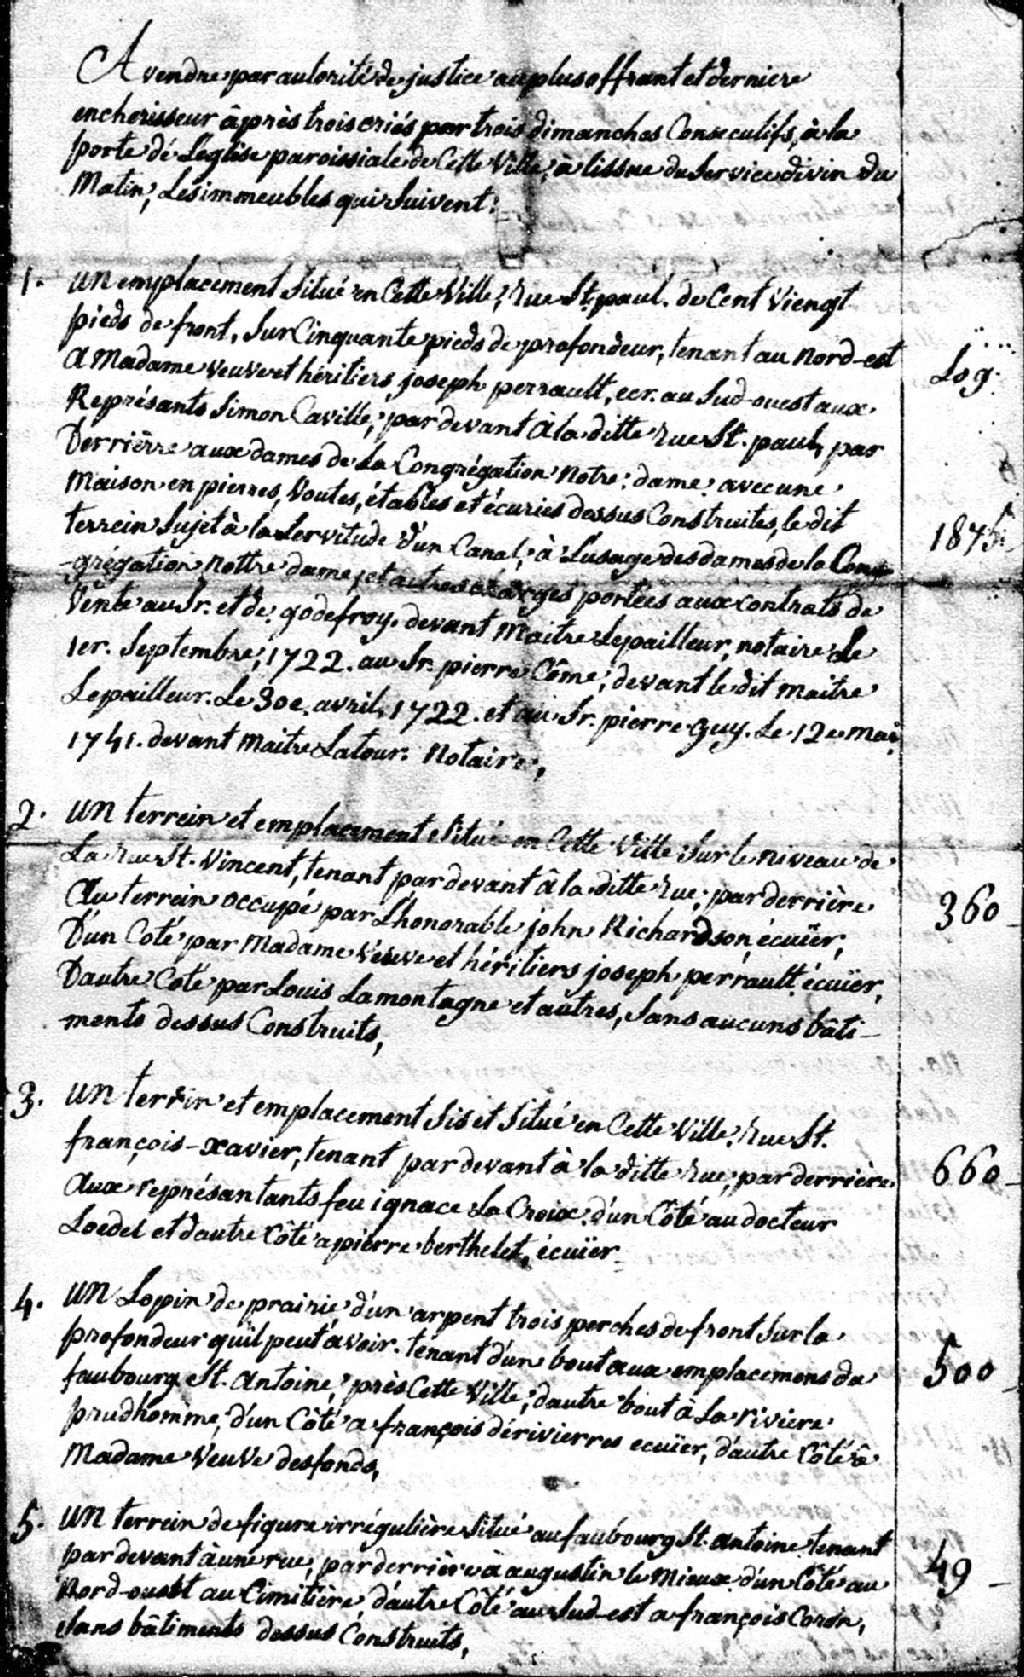 A vendre par autorité de justice au plus offrant et derniere
encherisseur âprès trois criés par trois dimanches Consecutifs, à la
porte dé Leglise paroissiale de Cette Ville, à lissue du Service divin du
Matin, Les immeubles qui Suivent:
1. un emplacement Situé en Cette Ville, rue St. paul. de Cent Viengt
pieds de front, Sur Cinquante pieds de profondeur, tenant au nord-est
A Madame veuve et héritiers joseph perrault, ecr. au Sud-ouest aux
Log.
Représants Simon Caville, par devant à la ditte rue St. paul, par
Derrière aux dames de La Congrégation Notre: dame. avec une
Maison en pierres, Voutes, étables et écuries dessus Construites, le dit
terrein Sujet à la Servitude d'un Canal, à Lusage des dames de la Con
1875
-grégation nottre dame, et autres charges portées aux contrats de
Vente au Sr. et de. godefroy. devant Maitre Lepailleur, notaire Le
1er. Septembre, 1722. au Sr. pierre Côme, devant le dit maitre
Lepailleur. Le 30e. avril, 1722. et au Sr. pierre guy. Le 12e mai
1741. devant Maitre Latour. Notaire,
2. un terrein et emplacement Situé en Cette Ville Sur le niveau de
La rue St. Vincent, tenant par devant â la ditte rue, par derrière
Au terrein occupé par L'honorable john Richardson, écuïer,
360
D'un Coté par Madame Veuve et héritiers joseph perrault écuïer,
D'autre Coté par Louis Lamontagne et autres, Sans aucuns bâti-
ments dessus Construits,
3. un terrein et emplacement Sis et Situé en Cette Ville, rue St.
françois-xavier, tenant par devant à la ditte rue, par derrière
660
Aux représantants feu ignace La Croix. d'un Côté au docteur
Loedel et d'autre Côté a pierre berthelet, écuïer
4. un Lopin de prairie d'un arpent trois perches de front Sur la
profondeur qu'il peut avoir. tenant d'un bout aux emplacemens du
faubourg St. Antoine, près Cette Ville, d'autre bout à La rivière
500
prudhomme, d'un Côté a françois dérivierres ecuïer, d'autre Côté â
Madame Veuve desfonds,
5. un terrein de figure irrégulière Situé au faubourg St. antoine tenant
par devant à une rue, par derrière à augustin le Mieux d'un Côté au
49
Nord-ouest au Cimitière d'autre Côté au Sud-est a françois Coron,
Sans bâtiments dessus Construits,